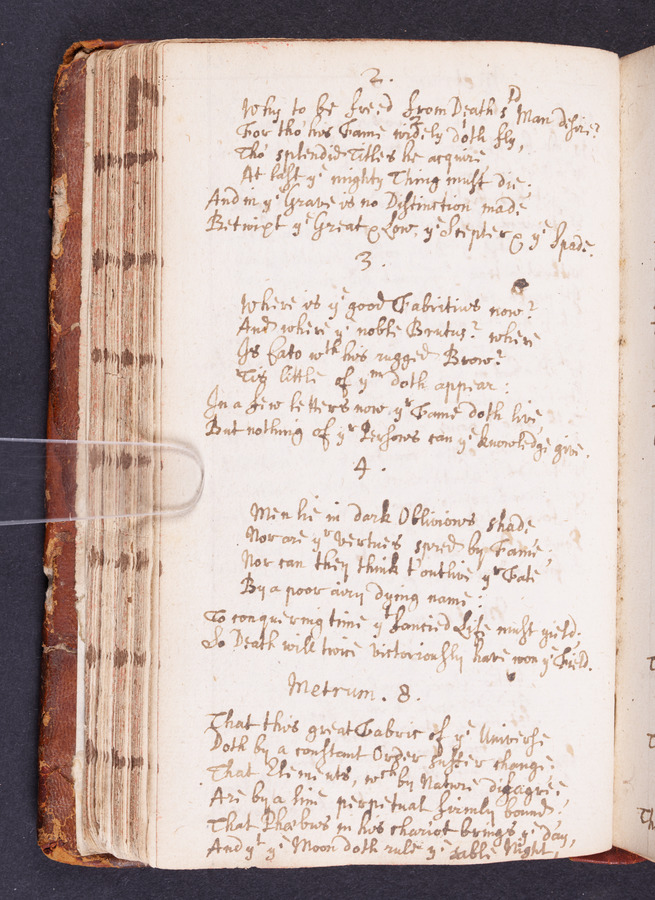 2.
Why to be freed from Death's Id Man desire?
For tho' his Fame widely doth fly,
Tho' splendid Titles he acquire
At last ye mighty Thing must die.
And in ye Grave is no Distinction made
Betwixt ye Great & Low, ye Scepter & ye Spade.
3.
Where is ye good Fabritius now?
And where ye noble Brutus? where
Is Cato wth his rugged Brow?
Tis little of ym doth appear:
In a few letters now yr Fame doth live,
But nothing of yr Persons can ye knowledge give.
4.
Men lie in dark Oblivions shade
Nor are yr Vertues spred by Fame;
Nor can they think t'outlive yr Fate
By a poor airy dying name:
To conquering time yt fancied Life must yield.
So Death will twice victoriously have won ye Field.
Metrum. 8.
That this great Fabric of ye Universe
Doth by a constant Order suffer change;
That Elements, wch by Nature disagree
Are by a fine perpetual firmly bound;
That Phœbus in his chariot brings ye day,
And yt ye Moon doth rule ye sable Night,